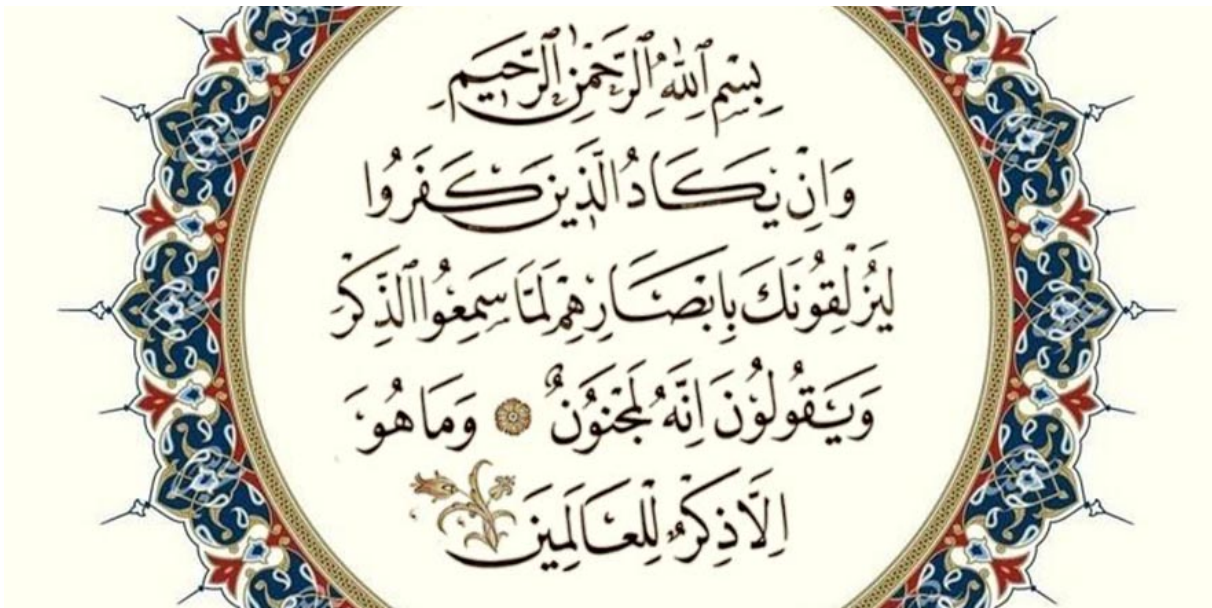 بِسْمِ اللّٰهِ الرَّحْمٰنِ الرَّحِيمِ
وَاِنْ يَكَادُ الَّذِينَ كَفَرُوا
لَيُزْلِقُونَكَ بِاَبْصَارِهِمْ لَمَّا سَمِعُوا الذِّكْرَ
وَيَقُولُونَ اِنَّهُ لَمَجْنُونٌ وَمَا هُوَ
اِلَّا ذِكْرٌ لِلْعَالَمِينَ